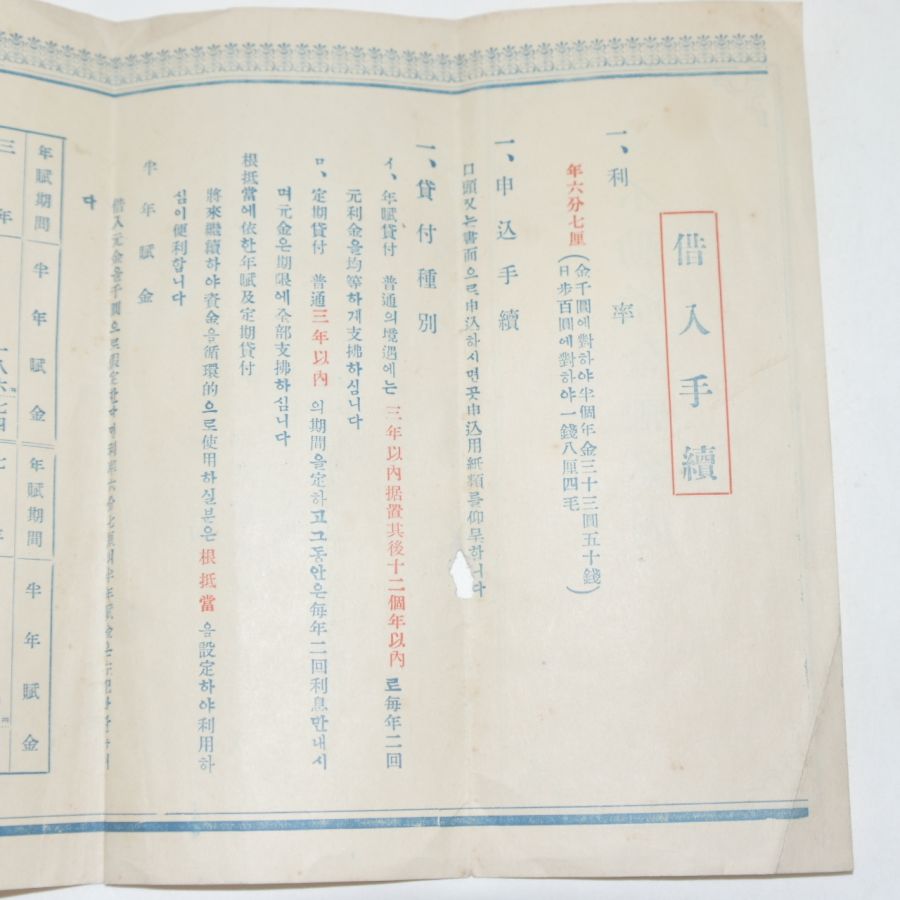 借入手續
一、利率
年六分七厘(金千圓에對하야半個年金三十三圓五十錢)
日步百圓에對하야一錢八厘四毛
一、申込手續
口頭又는書面으로申込하시면곳申込用紙類를仰呈하니다
一、貸付種別
イ、年賦貸付 普通의境遇에는 三年以內据置其後十二個年以內 로每年二回
元利金을均等하게支拂하십니다
ロ、定期貸付 普通三年以內의期間을定하고그동안은每年二回利息만내시
며元金은期限에全部支拂하십니다
根抵當에依한年賦及定期貸付
將來繼續하야資金을循環的으로使用하실분은根抵當을設定하야利用하
심이便利합니다
半年賦金
借入元金을千圓으로
다
年賦期間 半年賦金 年賦期間 半年賦金
三年